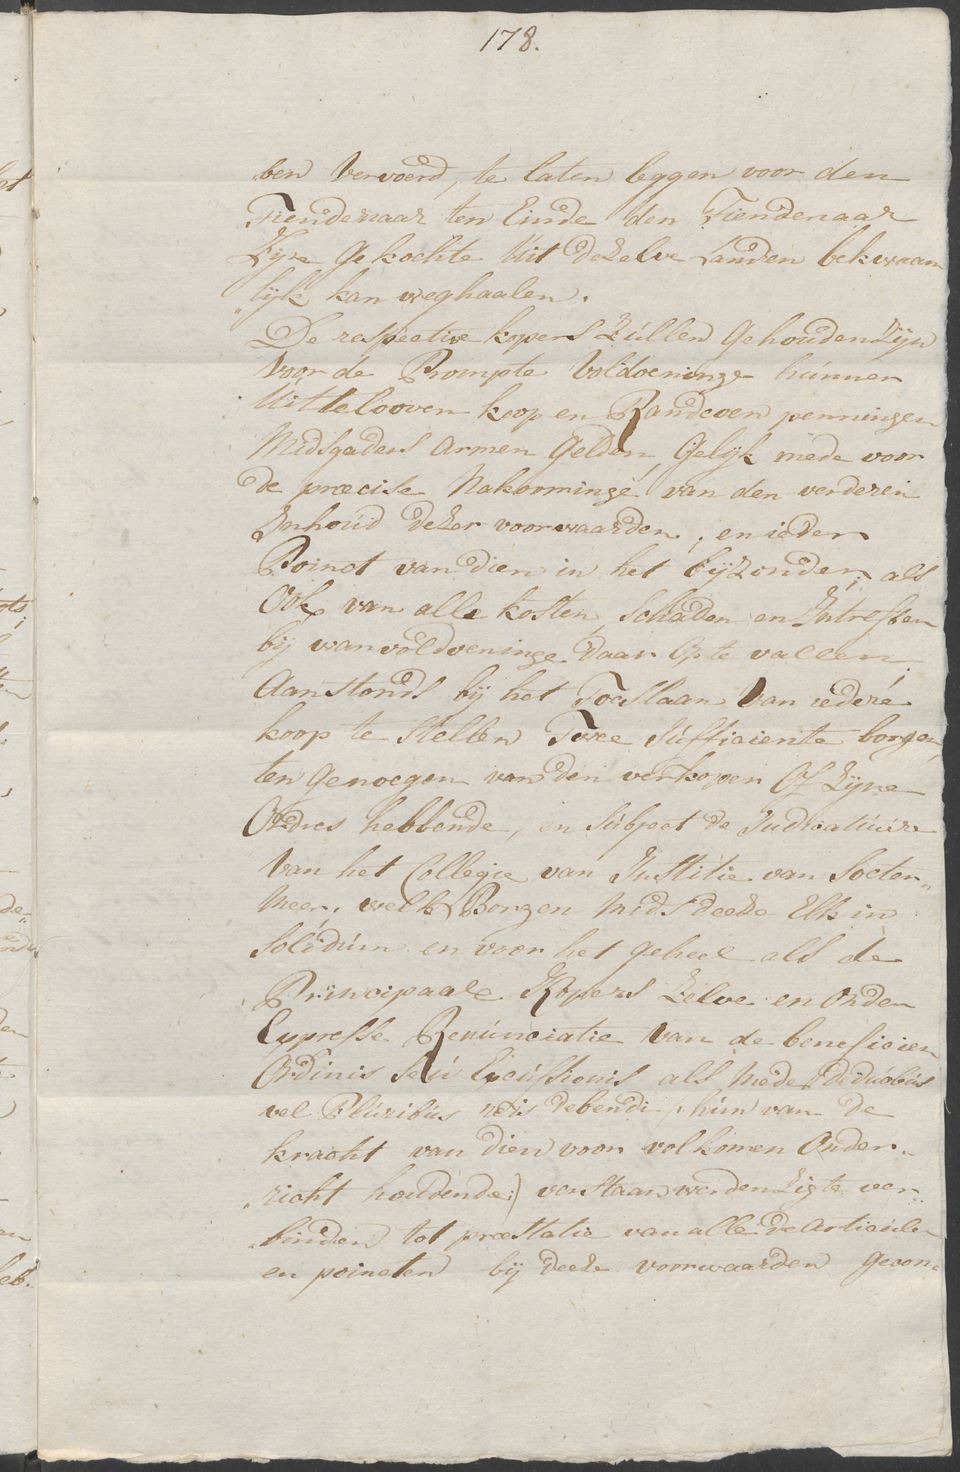 178.
ben vervoerd, te laten leggen voor den
Tiendenaar ten Einde den Tiendenaar
Zijne gekochte Uit dezelve Landen bekwaam
„lijk kan weghaalen.
De respective kopers Zullen gehouden Zijn
voor de Prompte voldoeninge hunner
Uittelooven koop en Randcoen penningen
Midsgaders Armen gelden, gelijk mede voor
de precise Nakominge van den verderen
Inhoud dezer voorwaarden, en ieder
Poinct van dien in het bijzonder, als
Ook van alle kosten, schaden en Intressen
bij wanvoldoeninge daar op te vallen;
Aanstonds bij het Toeslaan van iedere
koop te stellen Twee sufficiente borgen,
ten genoegen van den verkoper Of Zijne
Ordres hebbende, en subject de Judicatuure
van het Collegie van Justitie van Soeter„
Meer, welke Borgen Mids deeze Elk in
solidum en voor het geheel als de
Principaale Kopers Zelve en onder
Expresse Renunciatie van de beneficien
Ordinis seu Excussionis als mede de duobus
vel Pluribus reis debendi (: hun van de
kracht van dien voor volkomen Onder„
„richt houdende:) verstaan werden Zig te ver„
„binden tot præstatie van alle de Articulen
en poincten bij deeze voorwaarden gecon„